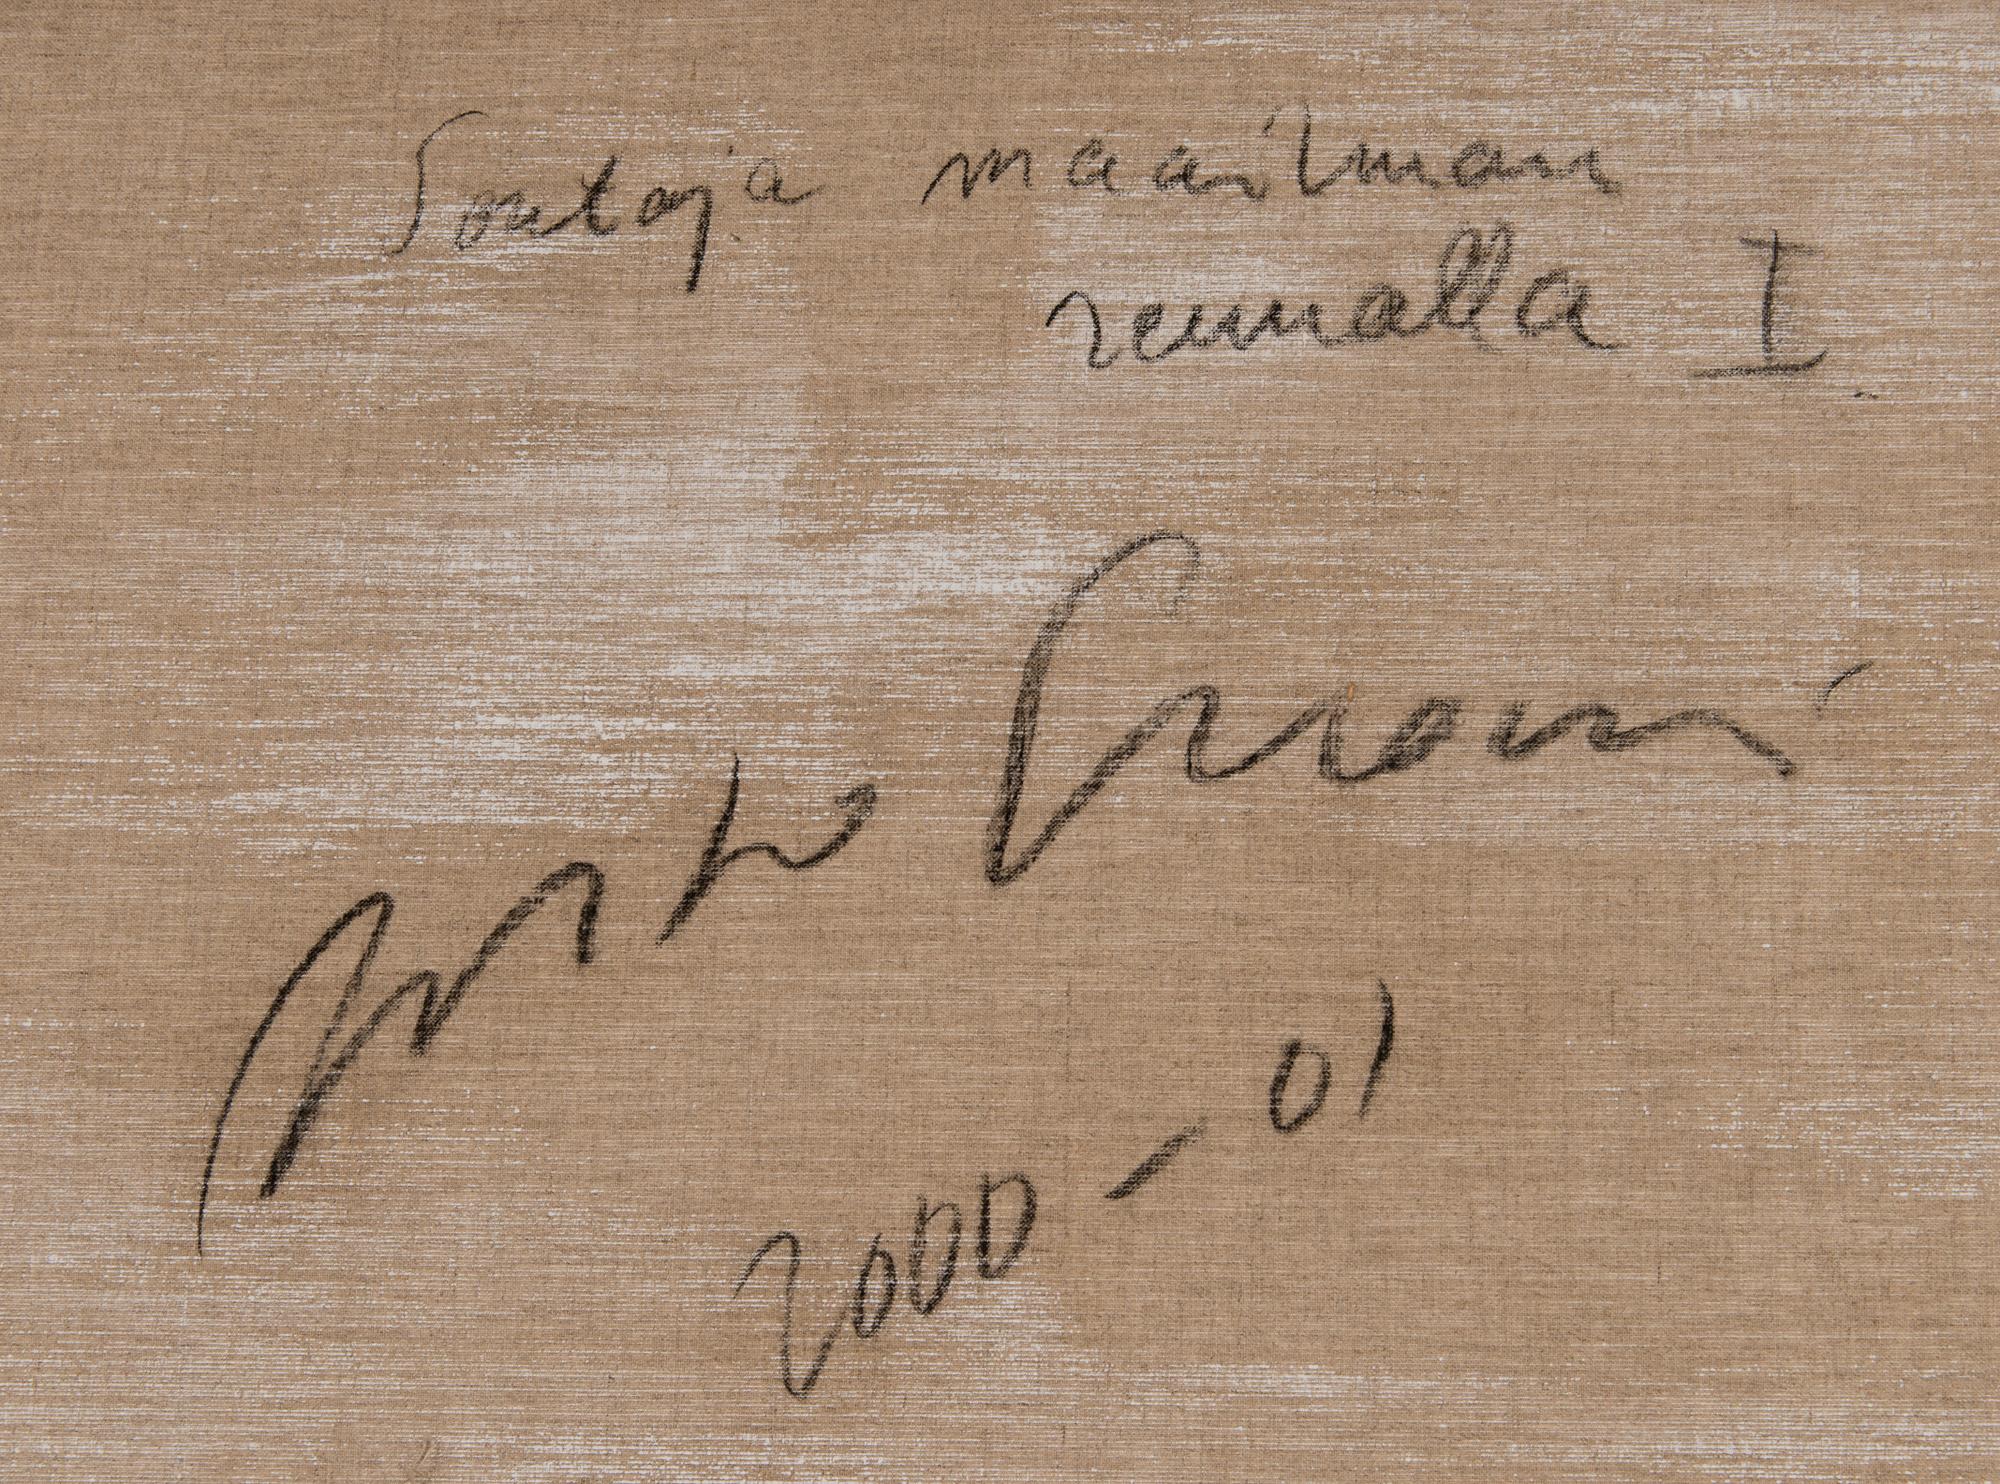 Soutaja maailman
reunalla I
2000 - 01